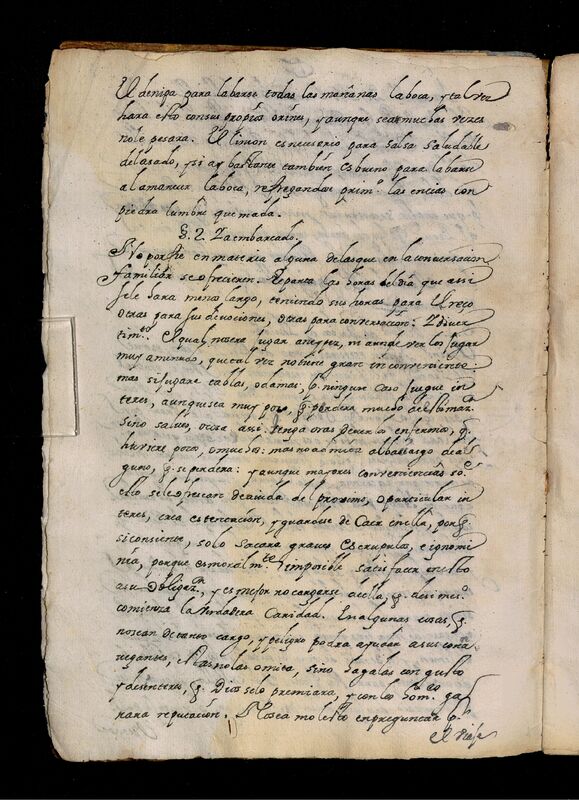 deniga para labarse todas las mañanas la boca, y tal vez
hara esto con sus propios orines, y aunque sea muchas vezes
no le pesara. El limon es necesario para salsa saludable
del asado, y si ay bastante tambien es bueno para labarse
al amanecer la boca, refregandose prim.o las encias con
piedra lumbre quemada.
§. 2. Ya embarcado.
No porfie en materia alguna de las que en la conversacion
familiar se ofrecieren. Reparta las horas del dia que assi
se le hara menos largo, teniendo sus horas para el reço
otras para sus devociones, otras para conversacion: y diver
tim.to El qual no sera jugar
muy a menudo, que tal vez no tiene gran inconveniente:
mas si jugare tablas, o damas, p. ningun caso juegue in
teres, aunque sea muy poco, q. perdera mucho
sino salud, otra assi. tenga otras de ver los enfermos, q.
huviere pocos, o muchos: mas no admita albassasgo de al
guno, q. se perdera: y aunque mayores conveniencias so.e
esto se le ofrescan de aiuda del proximo, o particular in
teres, crea es tentacion, y guardese de caer en ella, porq.
si consiente, solo sacara graves escrupulos, e ignomi
nia, porque es moralm.te imposible satisfacer en esto
a su obligaz.n, y es mejor no cargarse de ella, q. de si mis.o
comienza la verdadera Caridad. En algunas cosas, q.
no sean de tanto cargo, y peligro podra ayudar a sus cona
vegantes, Mas no las omita, sino hagalas con gusto
y desinteres, q. Dios se lo premiara, y con los hom.es ga
nara reputacion. No sea molesto en preguntar p.r
el viaje